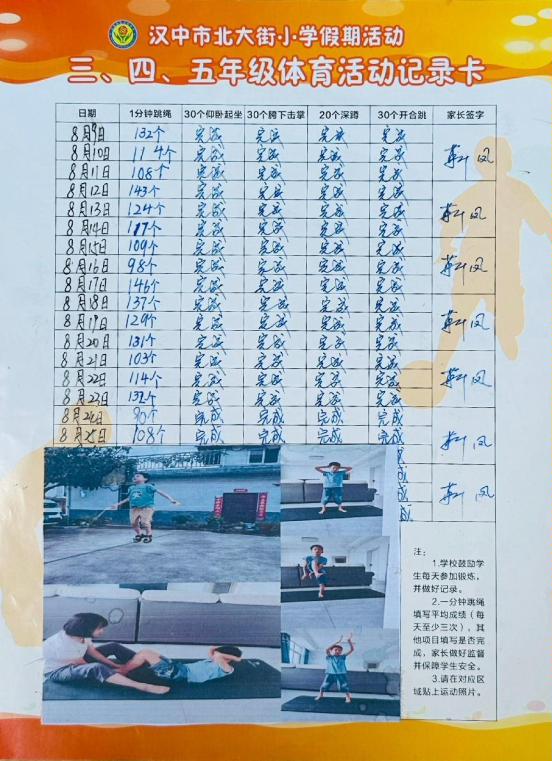 汉中市北大街小学假期活动
三、四、五年级体育活动记录卡
日期 1分钟跳绳 30个仰卧起坐 30个胯下击掌 20个深蹲 30个开合跳 家长签字
8月9日 132个 完成 完成 完成 完成
8月10日 114个 完成 完成 完成 完成
8月11日 108个 完成 完成 完成 完成
8月12日 143个 完成 完成 完成 完成
8月13日 124个 完成 完成 完成 完成
8月14日 117个 完成 完成 完成 完成
8月15日 109个 完成 完成 完成 完成
8月16日 98个 完成 完成 完成 完成
8月17日 146个 完成 完成 完成 完成
8月18日 137个 完成 完成 完成 完成
8月19日 129个 完成 完成 完成 完成
8月20日 131个 完成 完成 完成 完成
8月21日 103个 完成 完成 完成 完成
8月22日 114个 完成 完成 完成 完成
8月23日 132个 完成 完成 完成 完成
8月24日 90个 完成 完成 完成 完成
8月25日 108个 完成 完成 完成 完成
成
成
成
注：
1.学校鼓励学
生每天参加锻炼，
并做好记录。
2.一分钟跳绳
填写平均成绩（每
天至少三次），其
他项目填写是否完
成，家长做好监督
并保障学生安全。
3.请在对应区
域贴上运动照片。